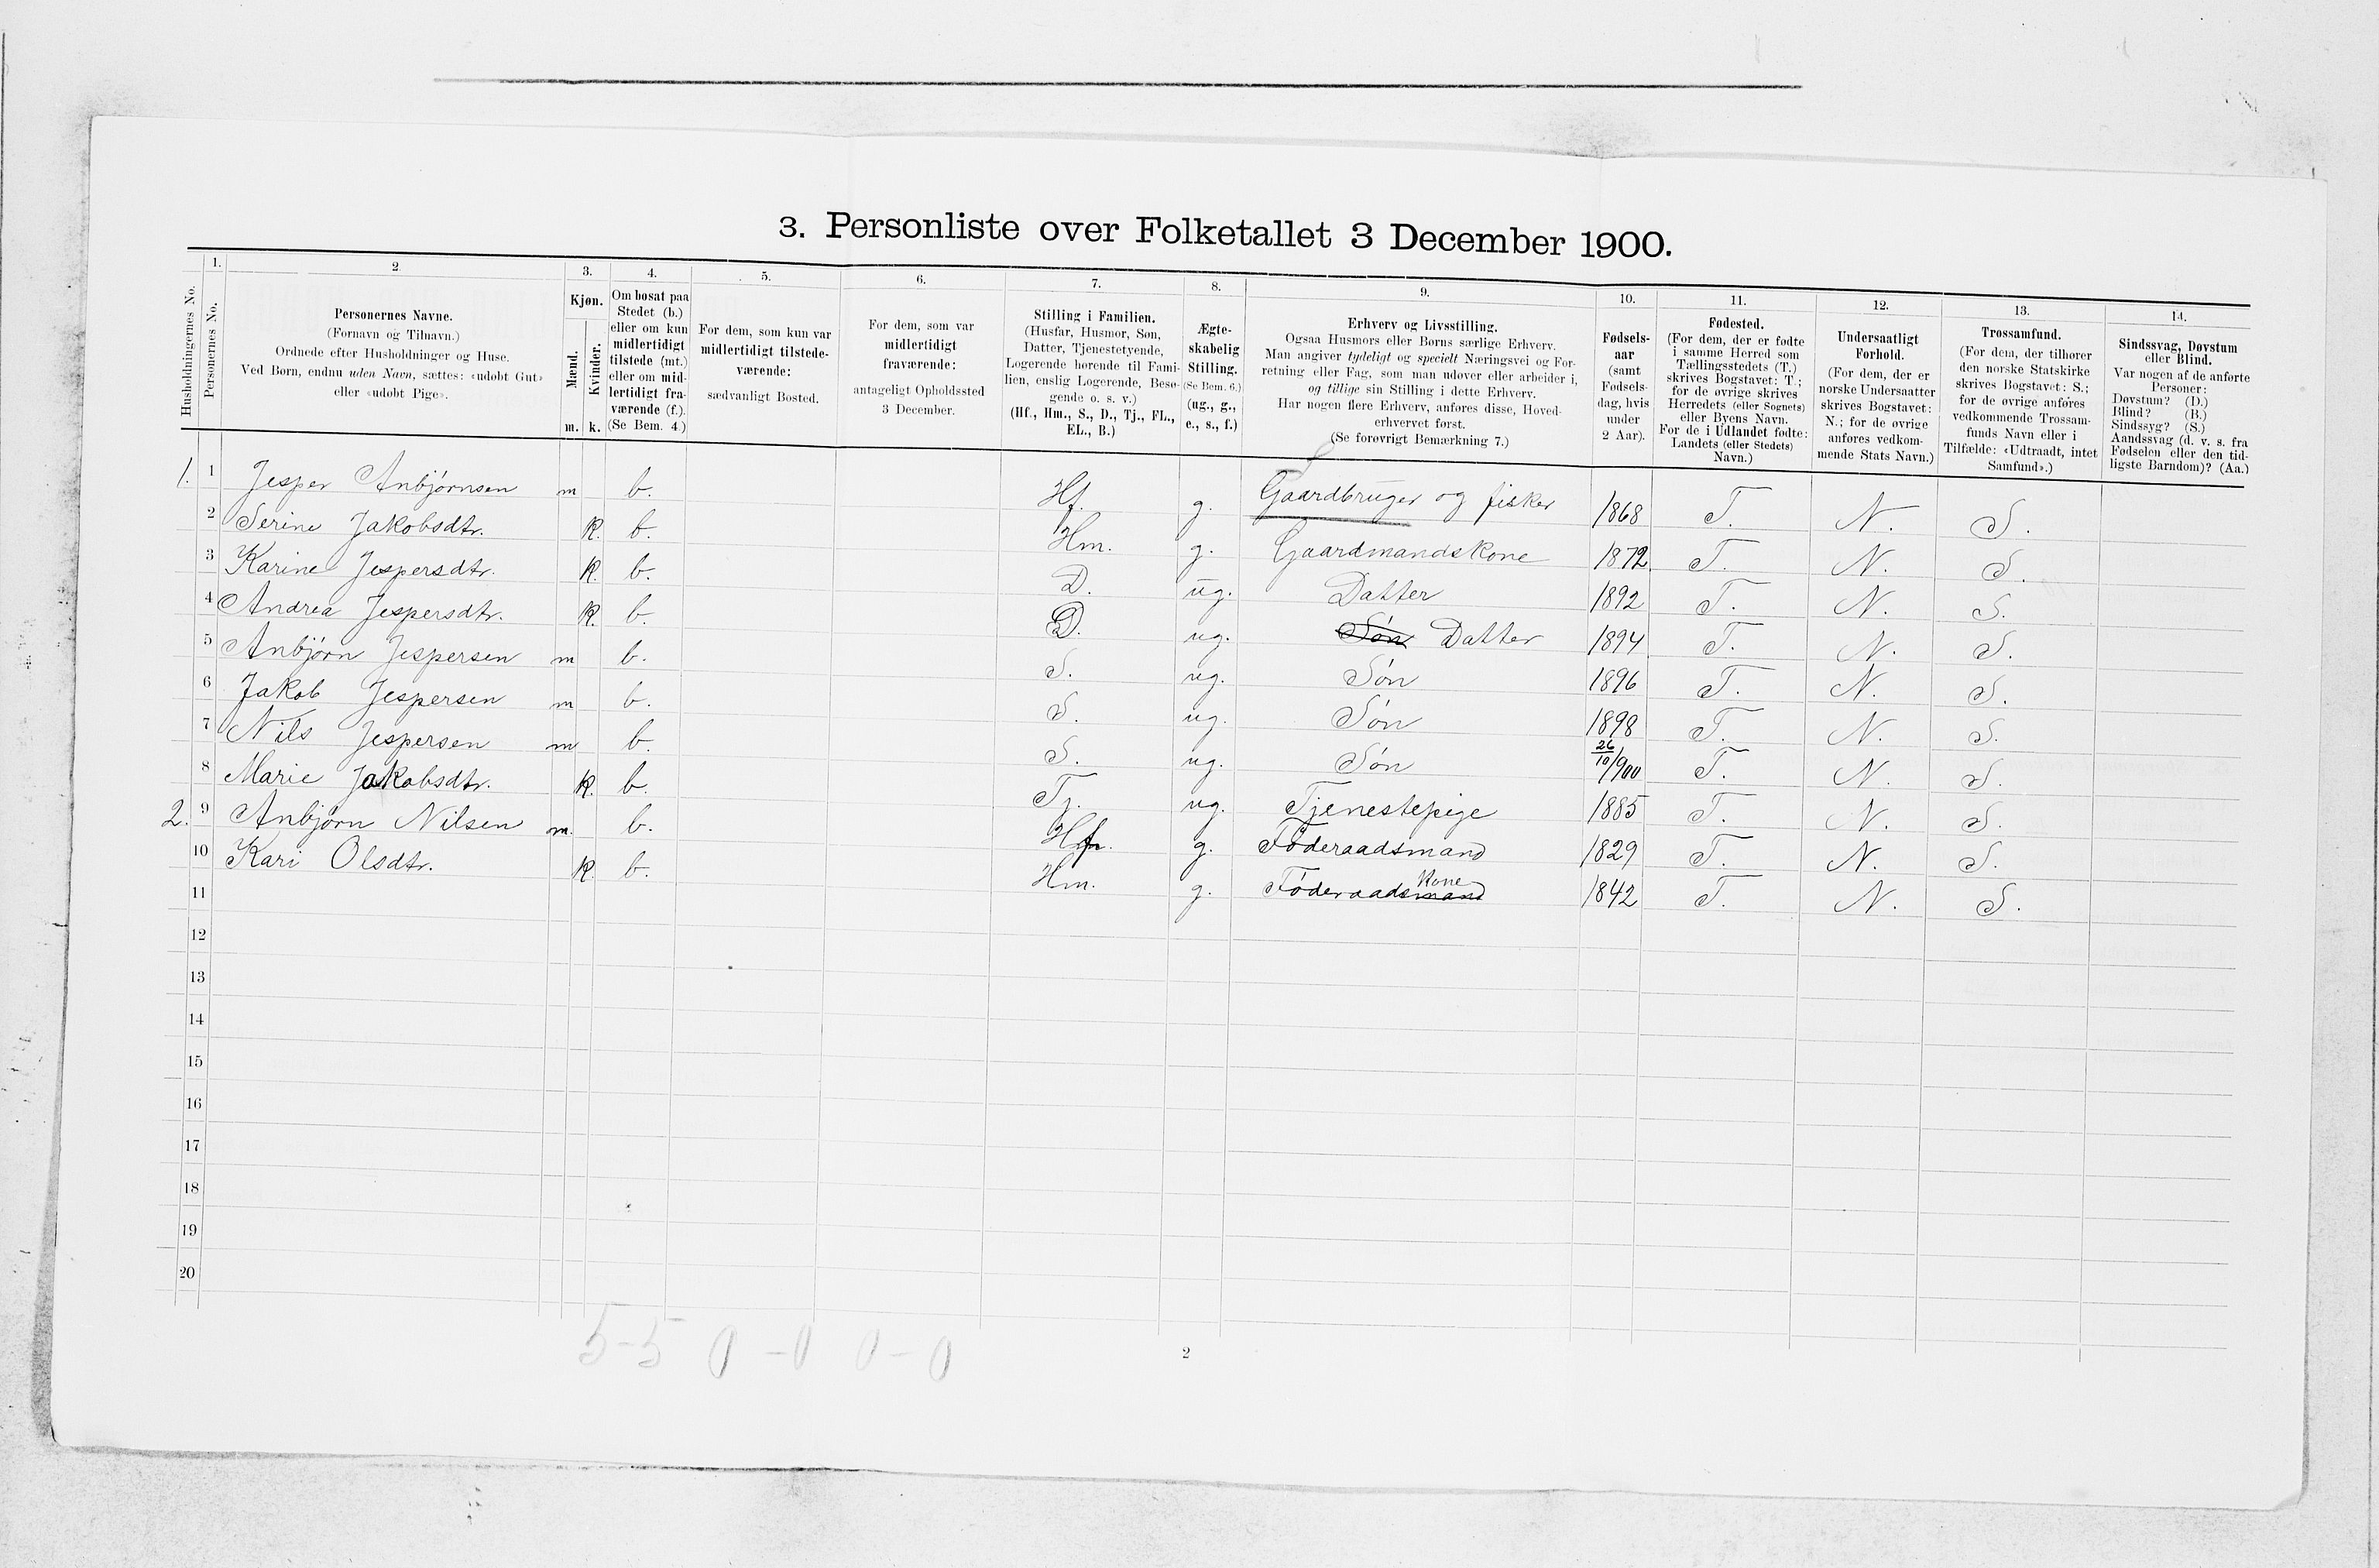 3. Personliste over Folketallet 3 December 1900.
Husholdningernes No.
1.
Personernes No.
2.
Personernes Navne.
(Fornavn og Tilnavn.)
Ordnede efter Husholdninger og Huse.
Ved Børn, endnu uden Navn, sættes: «udøbt Gut»
eller «udøbt Pige».
3.
Kjøn.
Mænd.
Kvinder.
m. k.
4.
Om bosat paa
Stedet (b.)
eller om kun
midlertidigt
tilstede (mt.)
eller om mid-
lertidigt fra-
værende (f.).
(Se Bem. 4.)
5.
For dem, som kun var
midlertidigt tilstede-
værende:
sædvanligt Bosted.
6.
For dem, som var
midlertidigt
fraværende:
antageligt Opholdssted
3 December.
7.
Stilling i Familien.
(Husfar, Husmor, Søn,
Datter, Tjenestetyende,
Logerende hørende til Fami-
lien, enslig Logerende, Besø-
gende o. s. v.)
(Hf., Hm., S., D., Tj., FL.,
EL., B.)
8.
Ægte-
skabelig
Stilling.
(Se Bem. 6.)
(ug., g.,
e., s., f.)
9.
Erhverv og Livsstilling.
Ogsaa Husmors eller Børns særlige Erhverv.
Man angiver tydeligt og specielt Næringsvei og For-
retning eller Fag, som man udøver eller arbeider i,
og tillige sin Stilling i dette Erhverv.
Har nogen flere Erhverv, anføres disse, Hoved-
erhvervet først.
(Se forøvrigt Bemærkning 7.)
10.
Fødsels-
aar
(samt
Fødsels-
dag, hvis
under
2 Aar).
11.
Fødested.
(For dem, der er fødte
i samme Herred som
Tællingsstedets (T.)
skrives Bogstavet: T.;
for de øvrige skrives
Herredets (eller Sognets)
eller Byens Navn.
For de i Udlandet fødte:
Landets (eller Stedets)
Navn.)
12.
Undersaatligt
Forhold.
(For dem, der er
norske Undersaatter
skrives Bogstavet:
N.; for de øvrige
anføres vedkom-
mende Stats Navn.)
13.
Trossamfund.
(For dem, der tilhører
den norske Statskirke
skrives Bogstavet: S.;
for de øvrige anføres
vedkommende Trossam-
funds Navn eller i
Tilfælde: «Udtraadt, intet
Samfund».)
14.
Sindssvag, Døvstum
eller Blind.
Var nogen af de anførte
Personer:
Døvstum? (D.)
Blind? (B.)
Sindssyg? (S.)
Aandssvag (d. v. s. fra
Fødselen eller den tid-
ligste Barndom)? (Aa.)
1. 1 Jesper Anbjørnsen m b. Hf. g. Gaardbruger og fisker 1868 T. N. S.
2 Serine Jakobsdtr. k. b. Hm. g. Gaardmandskone 1872 T. N. S.
3 Karine Jespersdtr. k. b. D. ug. Datter 1892 T. N. S.
4 Andrea Jespersdtr. k. b. D. ug. Søn Datter 1894 T. N. S.
5 Anbjørn Jespersen m b. S. ug. Søn 1896 T. N. S.
6 Jakob Jespersen m b. S. ug. Søn 1898 T. N. S.
7 Nils Jespersen m b. S. ug. Søn 26/10/900 T. N. S.
8 Marie Jakobsdtr. k. b. Tj. ug. Tjenestepige 1885 T. N. S.
2. 9 Anbjørn Nilsen m. b. Hf. g. Føderaadsmand 1829 T. N. S.
10 Kari Olsdtr. k. b. Hm. g. Føderaadsmand kone 1842 T. N. S.
11
12
13
14
15
16
17
18
19
20
5-5 0-0 0-0
2